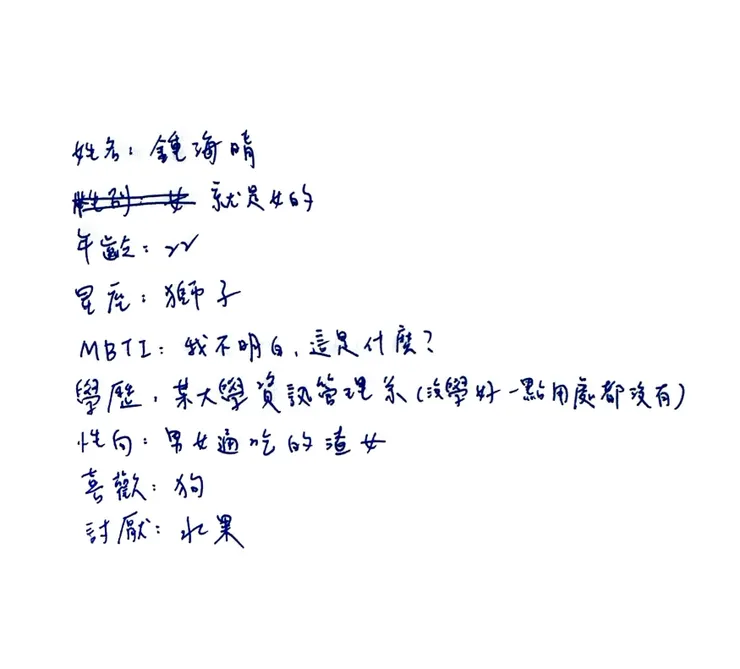 姓名：鍾海晴
性別：女 就是女的
年齡：22
星座：獅子
MBTI：我不明白，這是什麼？
學歷：某大學資訊管理系（沒學好一點用處都沒有）
性向：男女通吃的渣女
喜歡：狗
討厭：水果